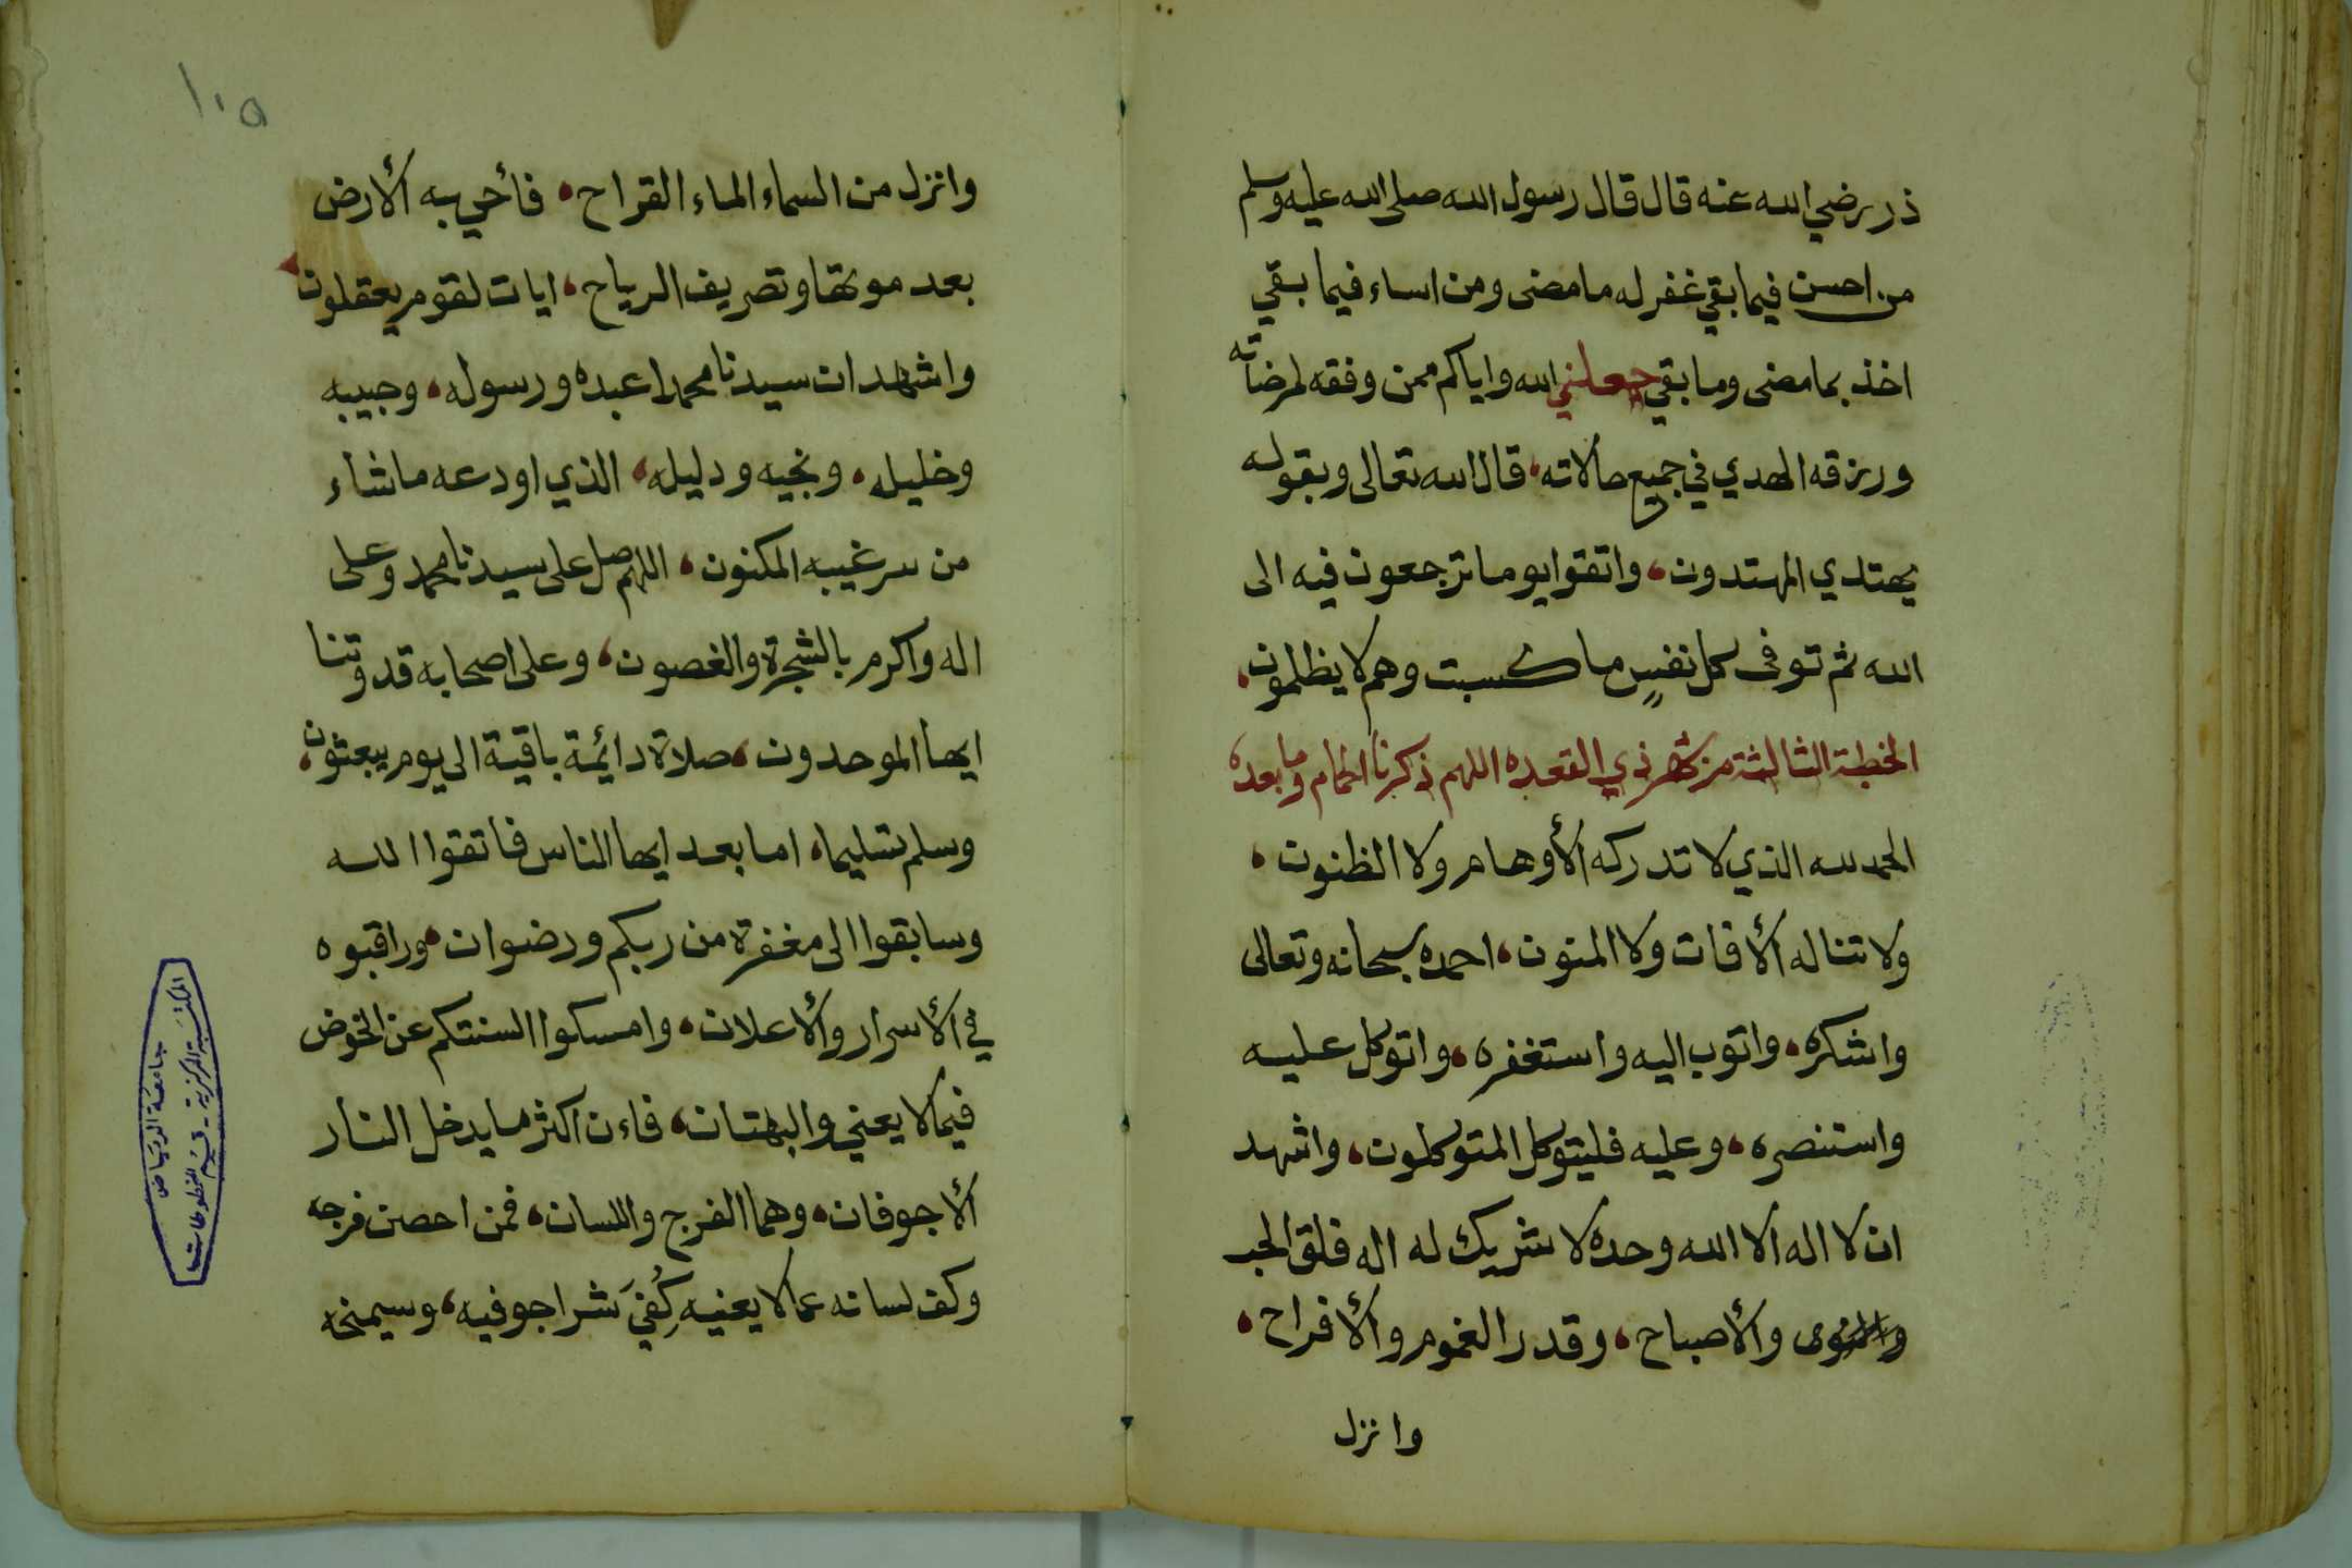 ذر رضي الله عنه قال قال رسول الله صلى الله عليه وسلم
من احسن فيما بقي غفر له ما مضى ومن اساء فيما بقي
اخذ بما مضى وما بقي جعلني الله واياكم ممن وفقه لمرضاته
ورزقه الهدي في جميع حالاته، قال الله تعالى وبقوله
يهتدي المهتدون، واتقوا يوما ترجعون فيه الى
الله ثم توفى كل نفسٍ ما كسبت وهم لا يظلمون،
الخطبة الثالثة من شهر ذي القعده اللهم ذكرنا الحمام وما بعده
الحمد لله الذي لا تدركه الأوهام ولا الظنون،
ولا تناله الأفات ولا المنون، احمده سبحانه وتعالى
واشكره، واتوب اليه واستغفره، واتوكل عليه
واستنصره، وعليه فليتوكل المتوكلون، واشهد
ان لا اله الا الله وحده لا شريك له اله فلق الحب
والنوى والأصباح، وقدر الغموم والأفراح،
وانزل
١٠٥
وانزل من السماء الماء القراح، فأحي به الأرض
بعد موتها وتصريف الرياح، ايات لقوم يعقلون
واشهد ان سيدنا محمدا عبده ورسوله، وحبيبه
وخليله، ونجيه ودليله، الذي اودعه ما شاء
من سر غيبه المكنون، اللهم صل على سيدنا محمد وعلى
اله واكرم بالشجرة والغصون، وعلى اصحابه قدوتنا
ايها الموحدون، صلاة دائمة باقية الى يوم يبعثون،
وسلم تسليما، اما بعد ايها الناس فاتقوا الله
وسابقوا الى مغفرة من ربكم ورضوان، وراقبوه
في الأسرار والأعلان، وامسكوا السنتكم عن الخوض
فيما لا يعني والبهتان، فاءن اكثر ما يدخل النار
الأجوفان، وهما الفرج واللسان، فمن احصن فرجه
وكف لسانه عما لا يعنيه كُفِيَ شر اجوفيه، وسيمنحه
جامعة الرياض
المكتبة المركزية - قسم المخطوطات